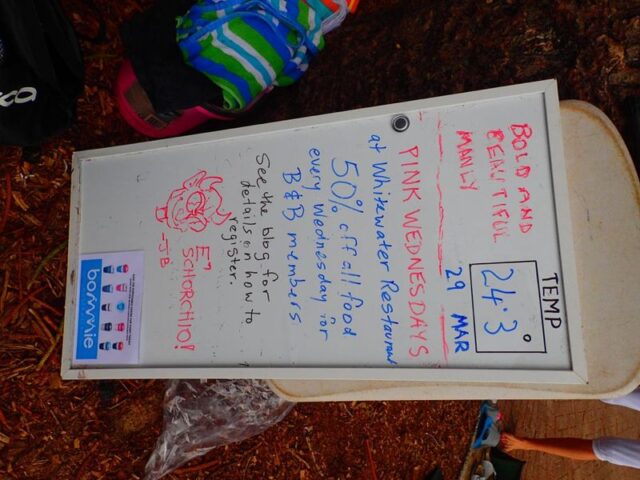 BOLD AND
BEAUTIFUL
MANLY
TEMP
24.3°
29 MAR
PINK WEDNESDAYS
at Whitewater Restaurant
50% off all food
every Wednesday for
B&B members
See the blog for
details on how to
register.
E' SCHORCHIO!
-JB